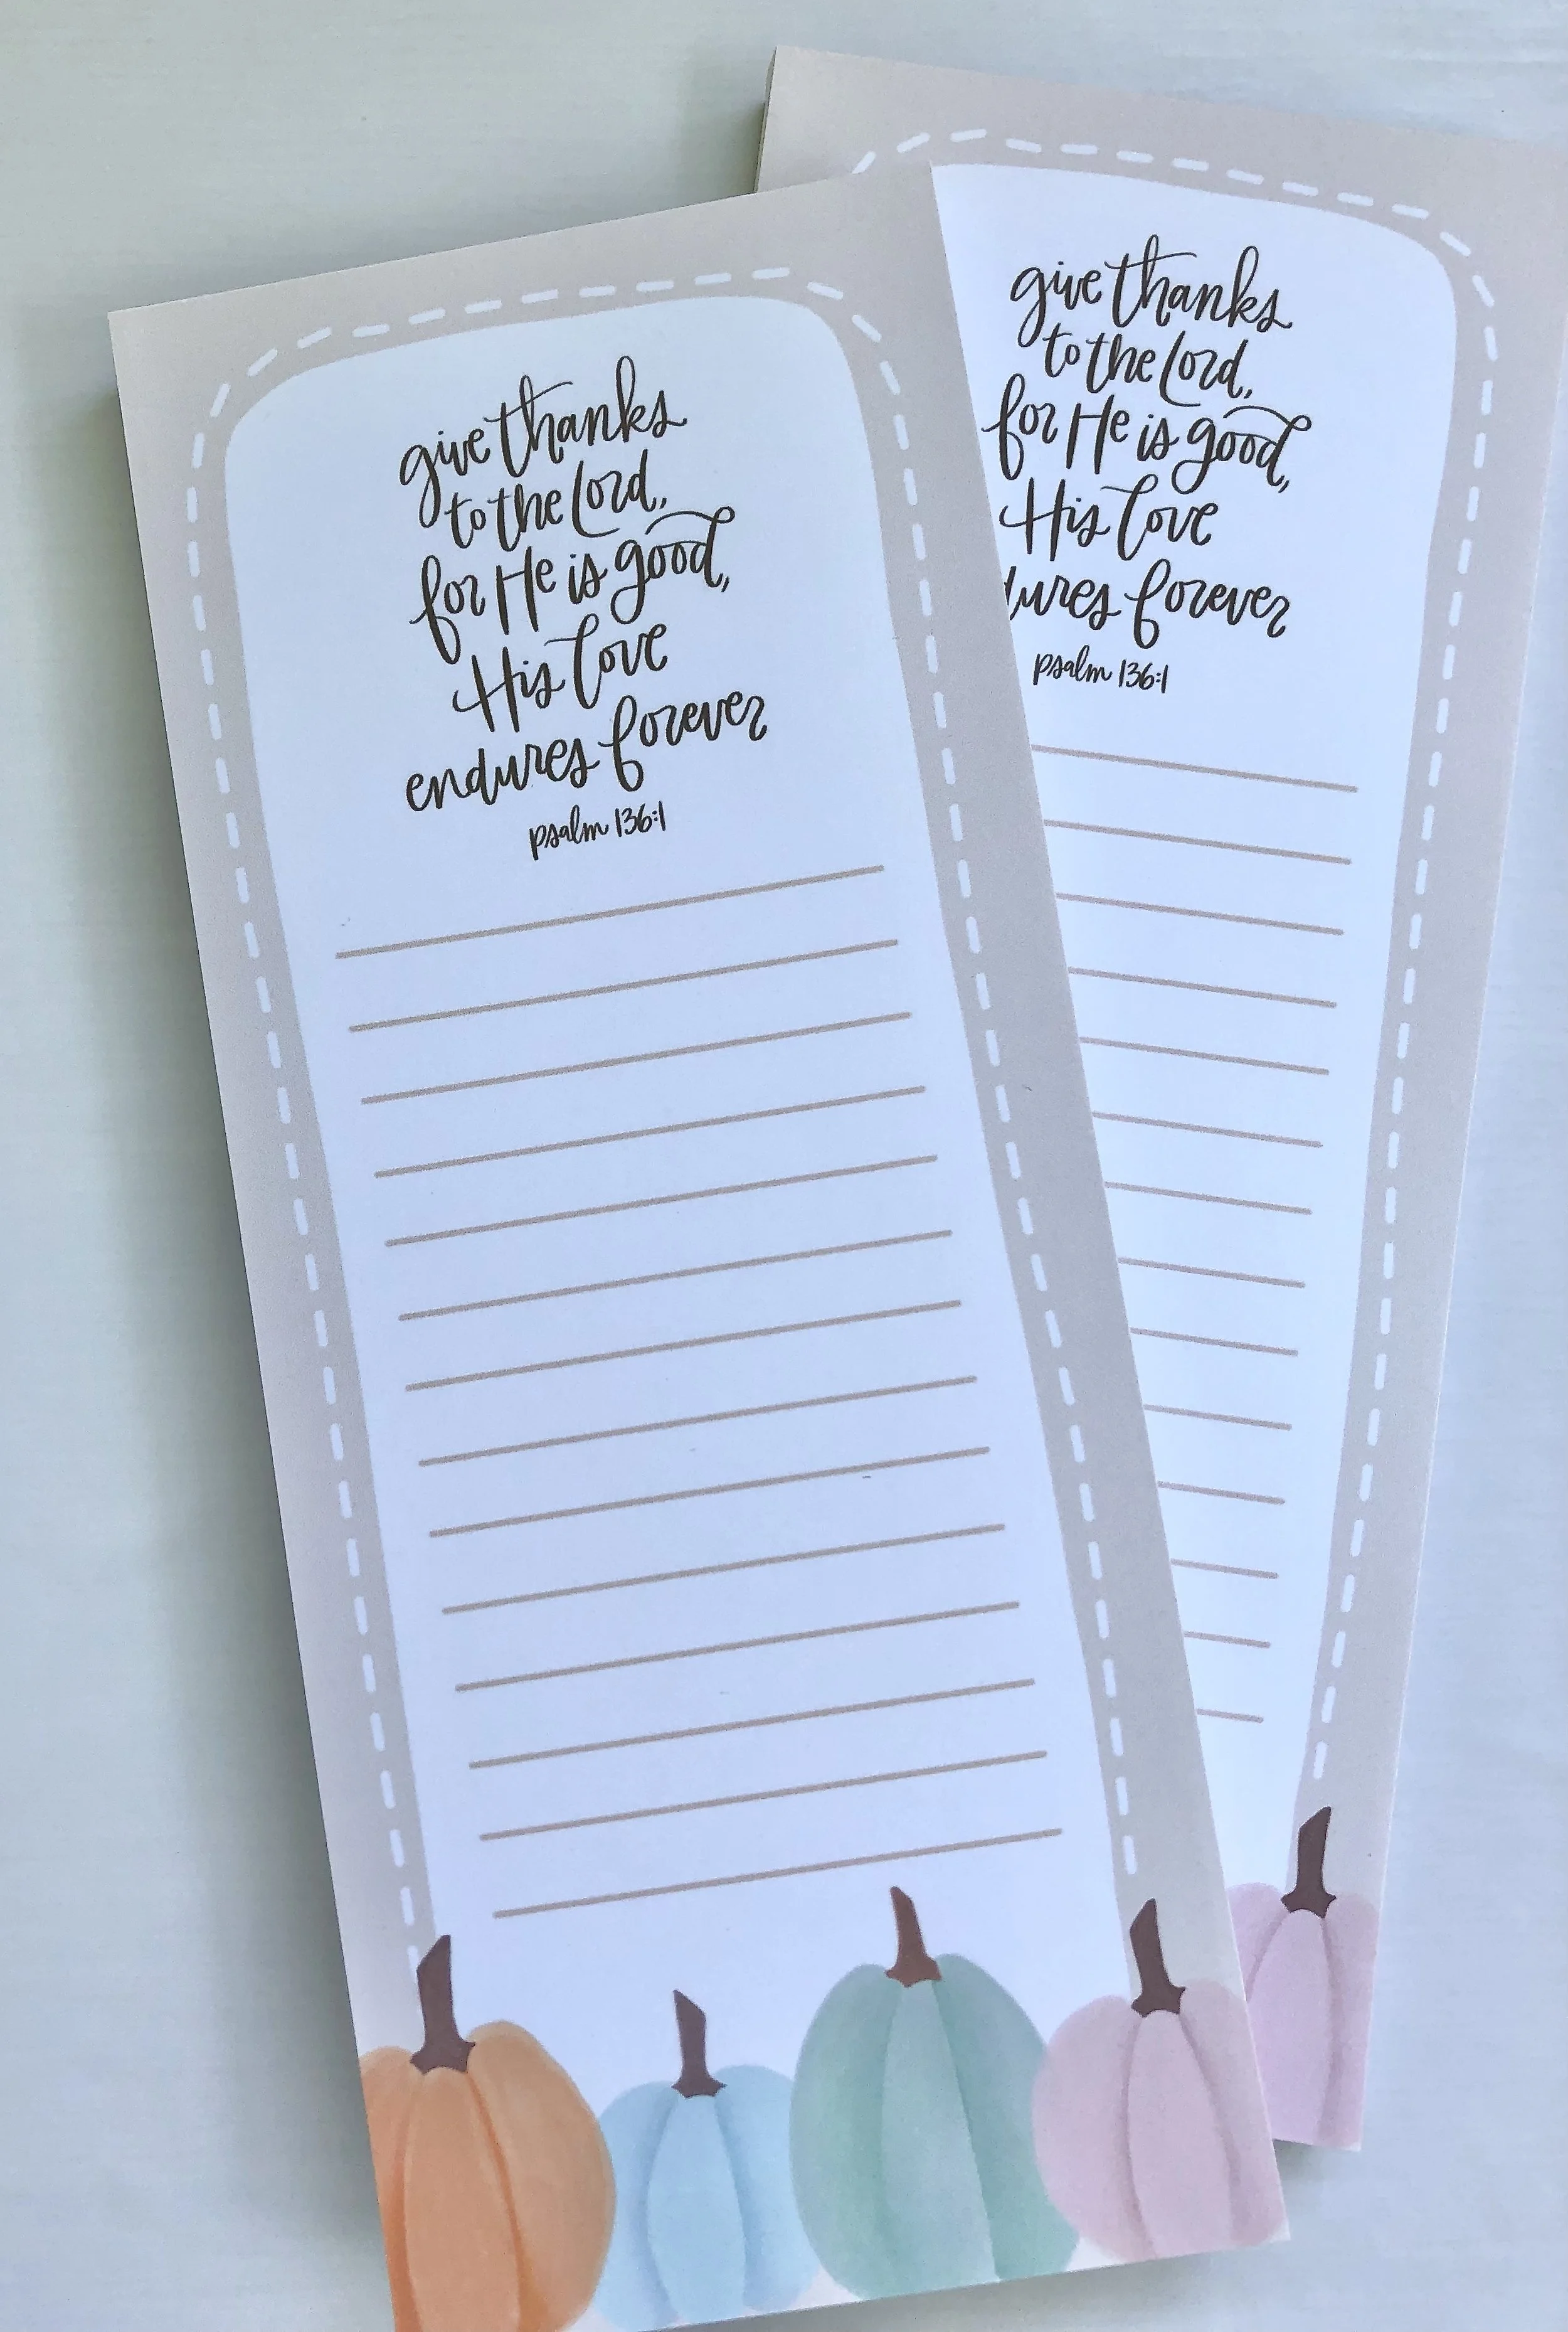 give thanks
to the Lord,
for He is good,
His love
endures forever
psalm 136:1
give thanks
to the Lord,
for He is good,
His love
dures forever
psalm 136:1